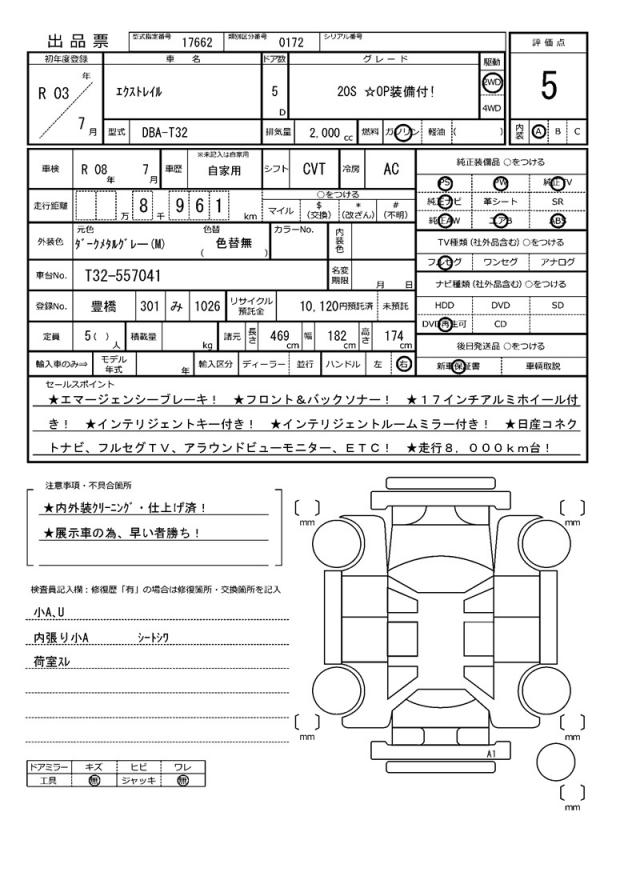 出 品 票 型式指定番号 17662 類別区分番号 0172 シリアル番号
評 価 点
5
内装 A B C
初年度登録 車 名 ドア数 グ レ ー ド 駆動
R 03 年 7 月
エクストレイル 5 D 20S ☆OP装備付! 2WD 4WD
型式 DBA-T32 排気量 2,000 cc 燃料 ガソリン 軽油 ( )
車検 R 08 年 7 月 車歴 ※未記入は自家用 自家用 シフト CVT 冷房 AC
走行距離 万 8 千 9 6 1 km ○をつける
マイル $ (交換) * (改ざん) # (不明)
外装色 元色 ダークメタルグレー(M) 色替 ( 色替無 ) カラーNo. 内装色
車台No. T32-557041 名変期限 月 日
登録No. 豊橋 301 み 1026 リサイクル預託金 10,120円預託済 未預託
定員 5( ) 人 積載量 kg 諸元 長さ 469 cm 幅 182 cm 高さ 174 cm
輸入車のみ⇒ モデル年式 年 輸入区分 ディーラー 並行 ハンドル 左 右
純正装備品 ○をつける
PS PW 純正TV
純正ナビ 革シート SR
純正AW エアB ABS
TV種類(社外品含む) ○をつける
フルセグ ワンセグ アナログ
ナビ種類(社外品含む) ○をつける
HDD DVD SD
DVD再生可 CD
後日発送品 ○をつける
新車保証書 車輌取説
セールスポイント
★エマージェンシーブレーキ! ★フロント&バックソナー! ★17インチアルミホイール付
き! ★インテリジェントキー付き! ★インテリジェントルームミラー付き! ★日産コネク
トナビ、フルセグTV、アラウンドビューモニター、ETC! ★走行8,000km台!
注意事項・不具合箇所
★内外装クリーニング・仕上げ済!
★展示車の為、早い者勝ち!
検査員記入欄:修復歴「有」の場合は修復箇所・交換箇所を記入
小A、U
内張り小A シートシワ
荷室スレ
ドアミラー キズ ヒビ ワレ
工具 無 ジャッキ 無
mm
mm
mm
mm
A1
mm